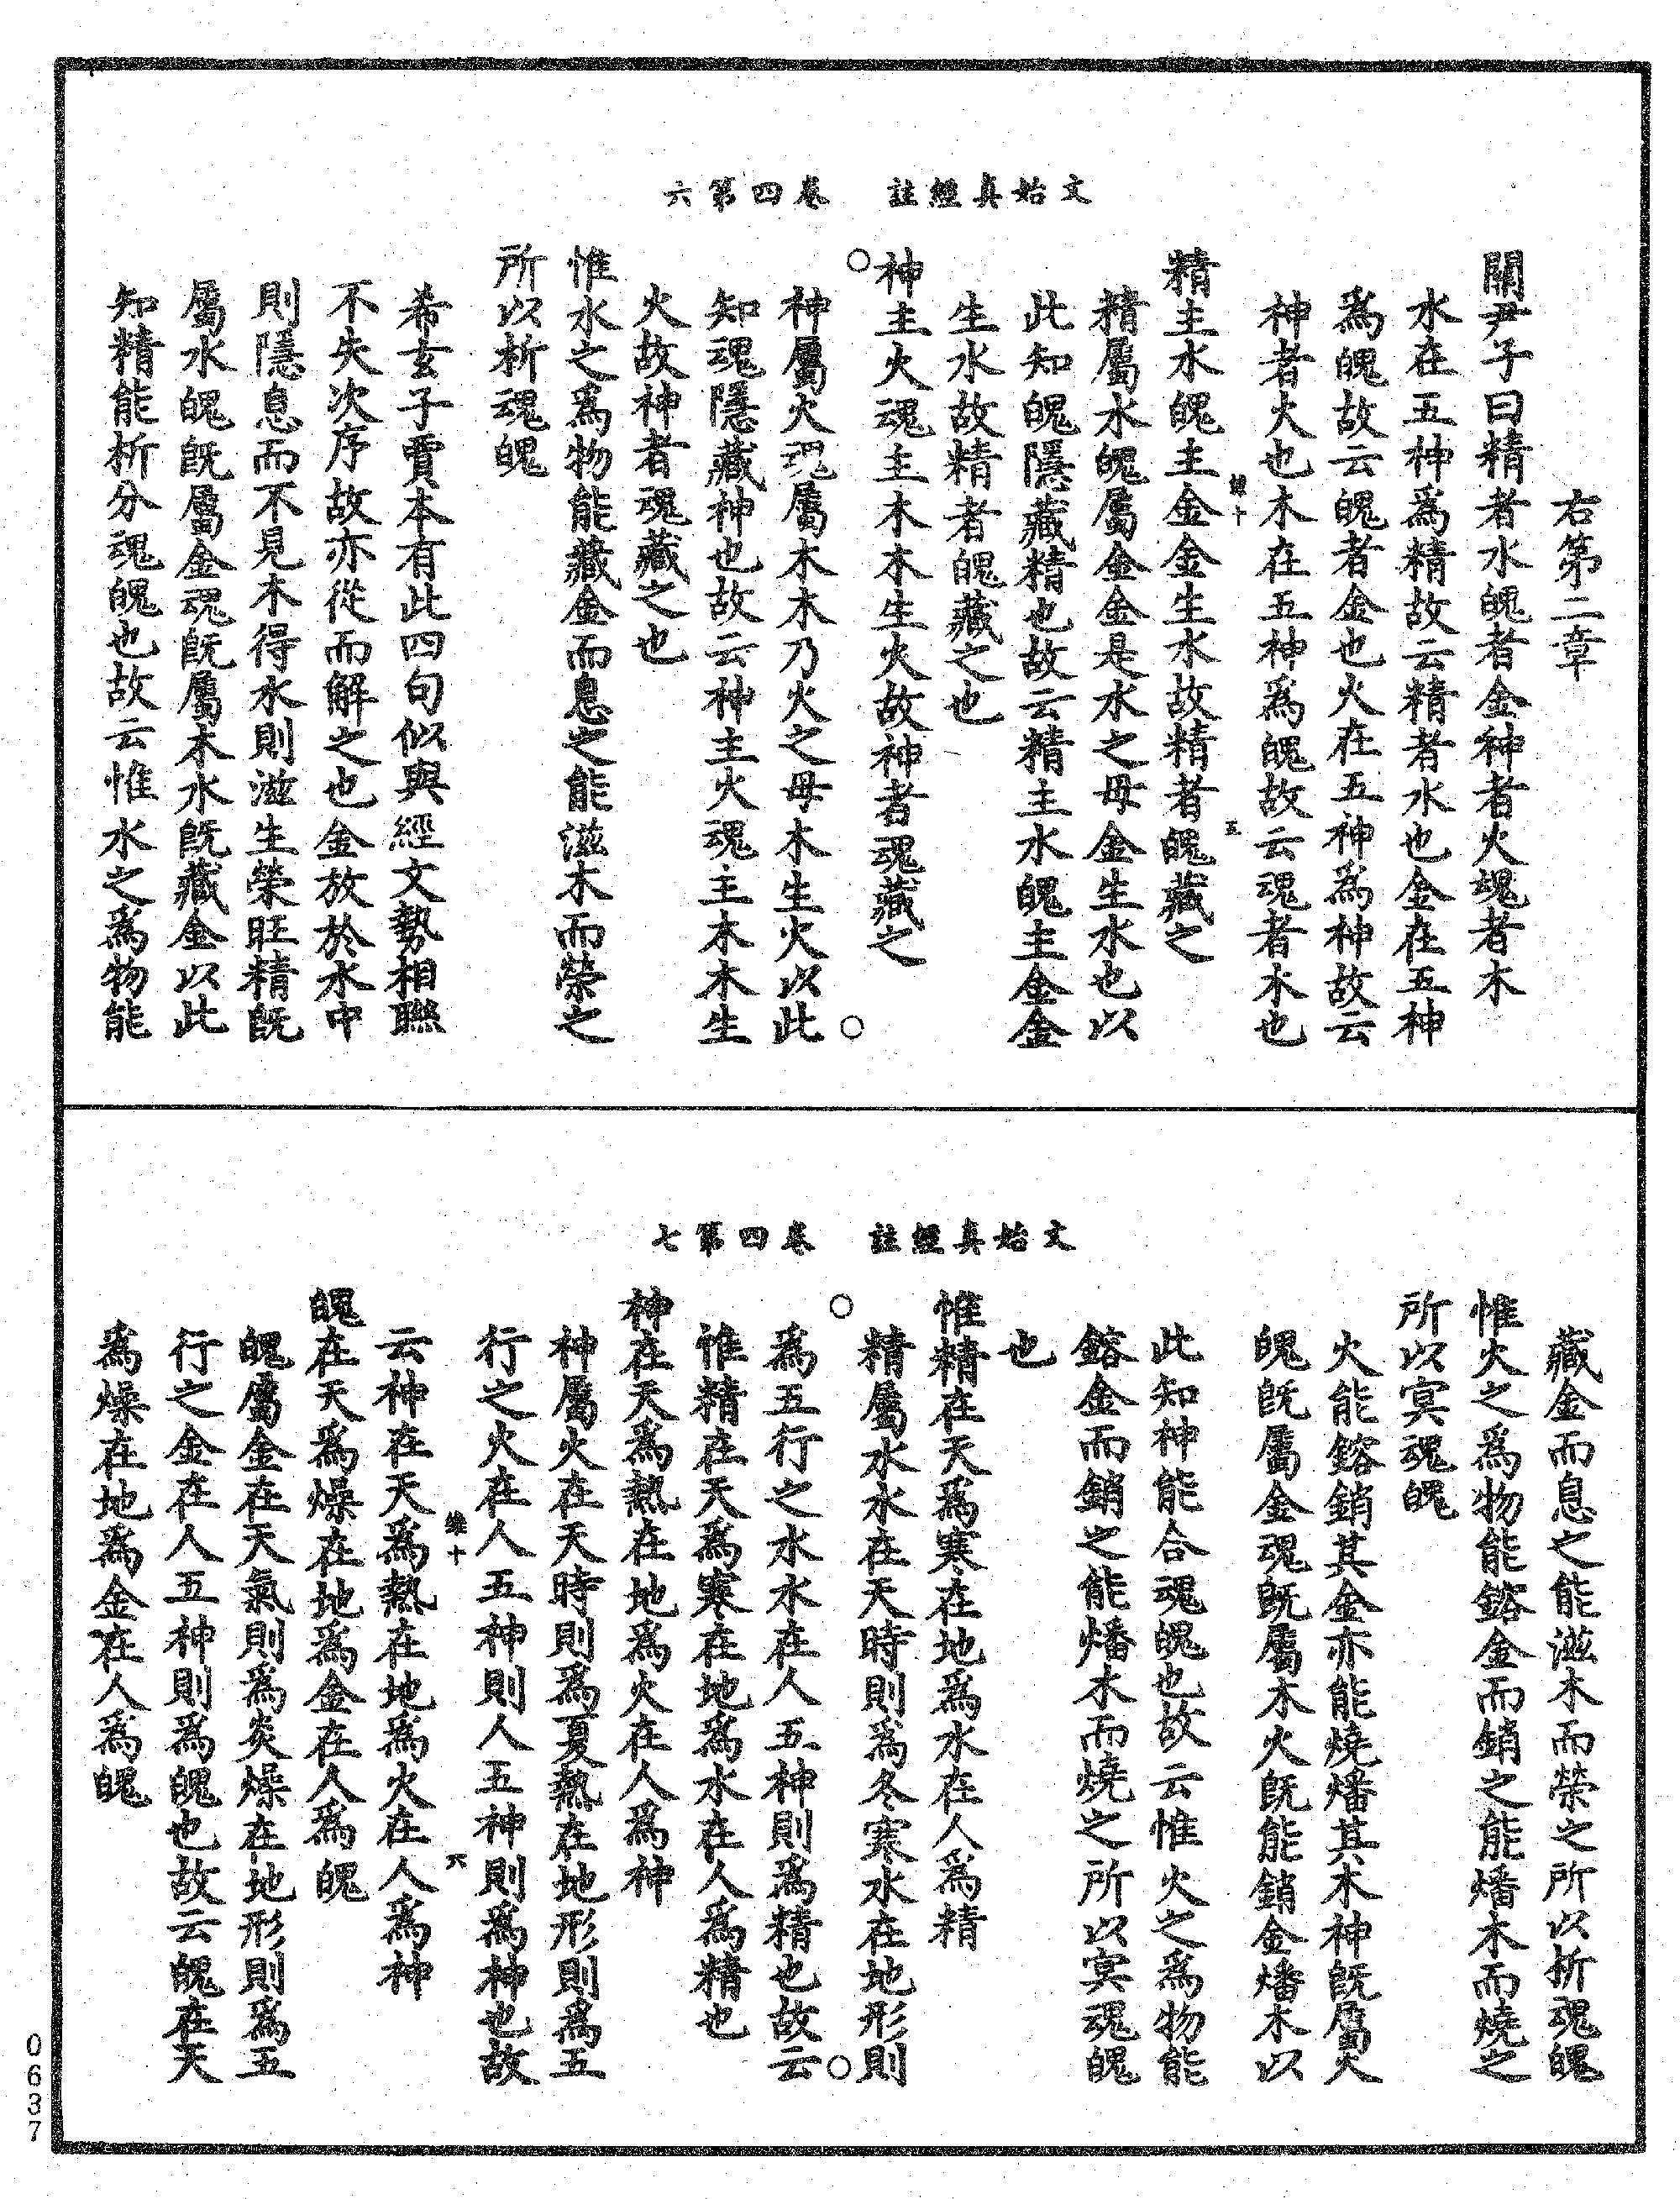 文始真經註　卷四第六
右第二章
關尹子曰精者水魄者金神者火魂者木
水在五神爲精故云精者水也金在五神
爲魄故云魄者金也火在五神爲神故云
神者火也木在五神爲魄故云魂者木也
精主水魄主金金生水故精者魄藏之
精屬水魄屬金金是水之母金生水也以
此知魄隱藏精也故云精主水魄主金金
生水故精者魄藏之也
神主火魂主木木生火故神者魂藏之
神屬火魂屬木木乃火之母木生火以此
知魂隱藏神也故云神主火魂主木木生
火故神者魂藏之也
惟水之爲物能藏金而息之能滋木而榮之
所以析魂魄
希玄子賈本有此四句似與經文勢相聯
不失次序故亦從而解之也金放於水中
則隱息而不見木得水則滋生榮旺精既
屬水魄既屬金魂既屬木水既藏金以此
知精能析分魂魄也故云惟水之爲物能
文始真經註　卷四第七
藏金而息之能滋木而榮之所以折魂魄
惟火之爲物能鎔金而銷之能燔木而燒之
所以冥魂魄
火能鎔銷其金亦能燒燔其木神既屬火
魄既屬金魂既屬木火既能銷金燔木以
此知神能合魂魄也故云惟火之爲物能
鎔金而銷之能燔木而燒之所以冥魂魄
也
惟精在天爲寒在地爲水在人爲精
精屬水水在天時則爲冬寒水在地形則
爲五行之水水在人五神則爲精也故云
惟精在天爲寒在地爲水在人爲精也
神在天爲熱在地爲火在人爲神
神屬火在天時則爲夏熱在地形則爲五
行之火在人五神則人五神則爲神也故
云神在天爲熱在地爲火在人爲神
維十　六
魄在天爲燥在地爲金在人爲魄
魄屬金在天氣則爲炎燥在地形則爲五
行之金在人五神則爲魄也故云魄在天
爲燥在地爲金在人爲魄
0637